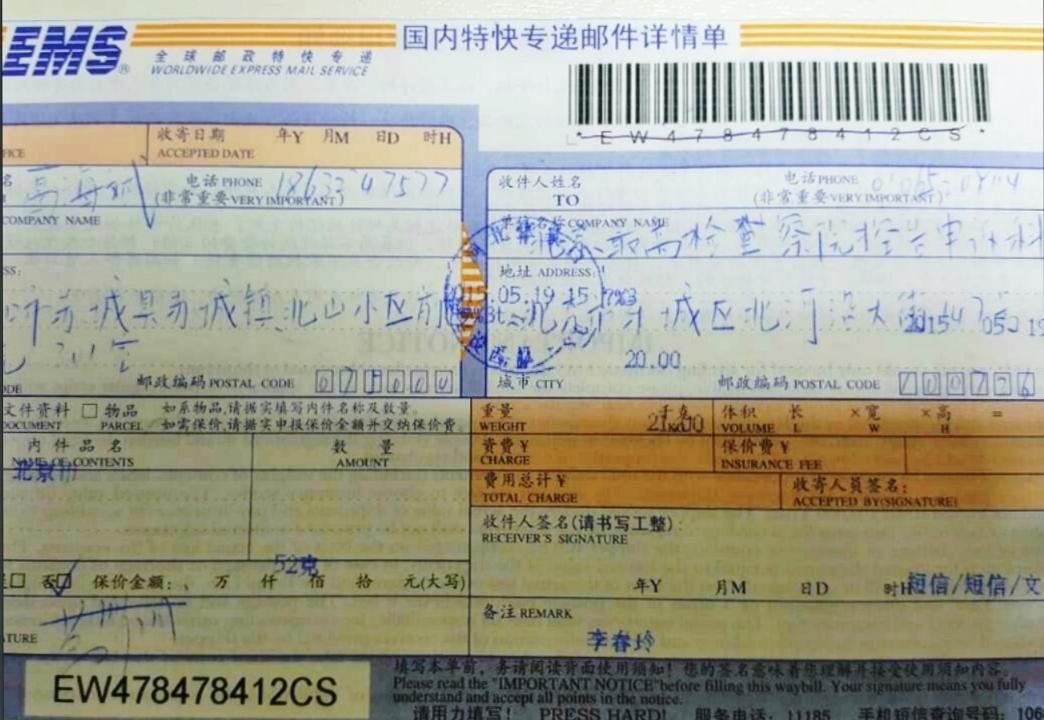 EMS
全球邮政特快专递
WORLDWIDE EXPRESS MAIL SERVICE
国内特快专递邮件详情单
EW478478412CS
收寄日期 年Y 月M 日D 时H
ACCEPTED DATE
电话PHONE
(非常重要VERY IMPORTANT)
COMPANY NAME
收件人姓名
TO
电话PHONE
(非常重要VERY IMPORTANT)
单位名称COMPANY NAME
北京 最高检察院控告申诉科
地址 ADDRESS:
05.05.19 15
城县 城镇北山小区
北京市东城区北河沿大街147
20.00
邮政编码 POSTAL CODE
城市 CITY
邮政编码 POSTAL CODE 100726
文件资料 物品
DOCUMENT PARCEL
如系物品,请据实填写内件名称及数量。
如需保价,请据实申报保价金额并交纳保价费。
重量
WEIGHT
体积 长 ×宽 ×高 =
VOLUME L W H
内件品名
NAME OF CONTENTS
数量
AMOUNT
北京市
资费¥
CHARGE
保价费¥
INSURANCE FEE
费用总计¥
TOTAL CHARGE
收寄人员签名:
ACCEPTED BY(SIGNATURE)
收件人签名(请书写工整):
RECEIVER'S SIGNATURE
52克
否 保价金额: 万 仟 佰 拾 元(大写)
年Y 月M 日D 时H
短信/短信/文
备注 REMARK
李春玲
EW478478412CS
填写本单前,务请阅读背面使用须知!您的签名意味着您理解并接受使用须知内容。
Please read the "IMPORTANT NOTICE" before filling this waybill. Your signature means you fully
understand and accept all points in the notice.
请用力填写! PRESS HARD! 服务电话:11185 手机短信查询号码:106